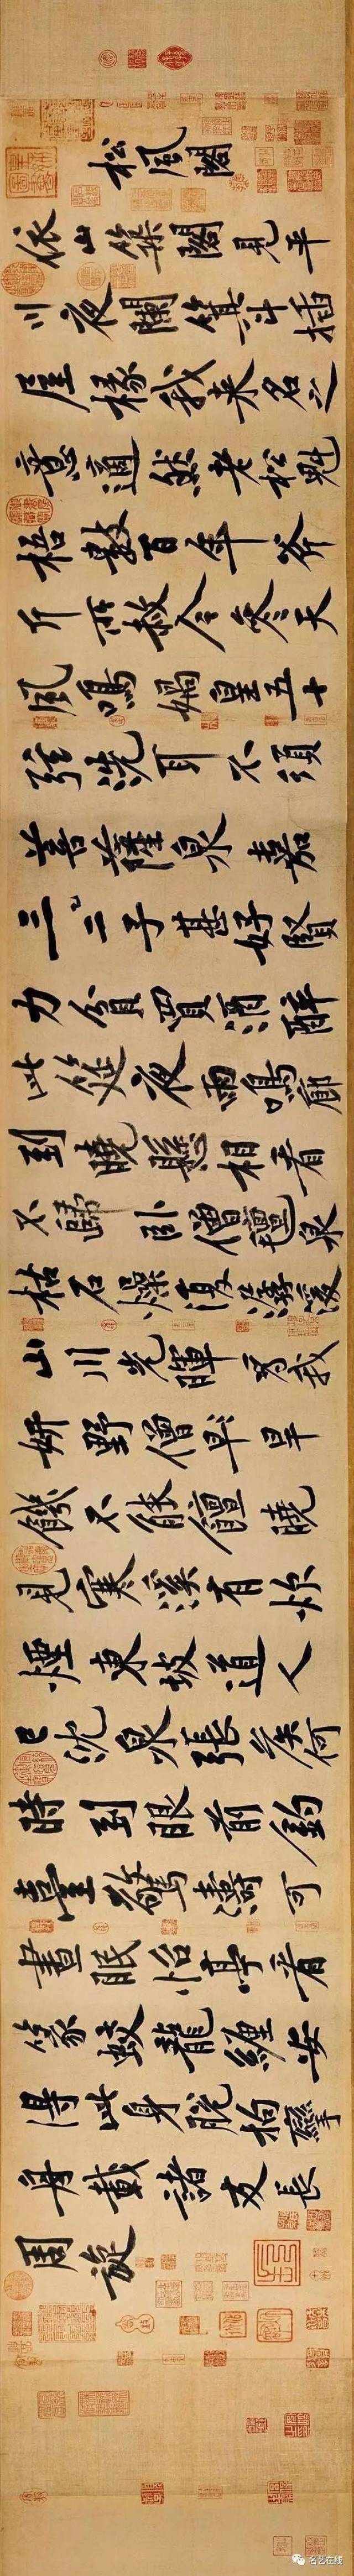 松風閣
依山築閣見平
川夜闌箕斗插
屋椽我來名之
意適然老松魁
梧數百年斧
斤所赦今參天
風鳴媧皇五十
弦洗耳不須
菩薩泉嘉
三二子甚好賢
力貧買酒醉
此筵夜雨鳴廊
到曉懸相看
不歸臥僧氈泉
枯石燥復潺湲
山川光暉為我
妍野僧早旱
饑不能饘曉
見寒溪有炊
煙東坡道人
已沈泉張侯何
時到眼前釣
臺驚濤可
晝眠怡亭看
篆蛟龍纏安
得此身脫拘攣
舟載諸友長
周旋
名艺在线